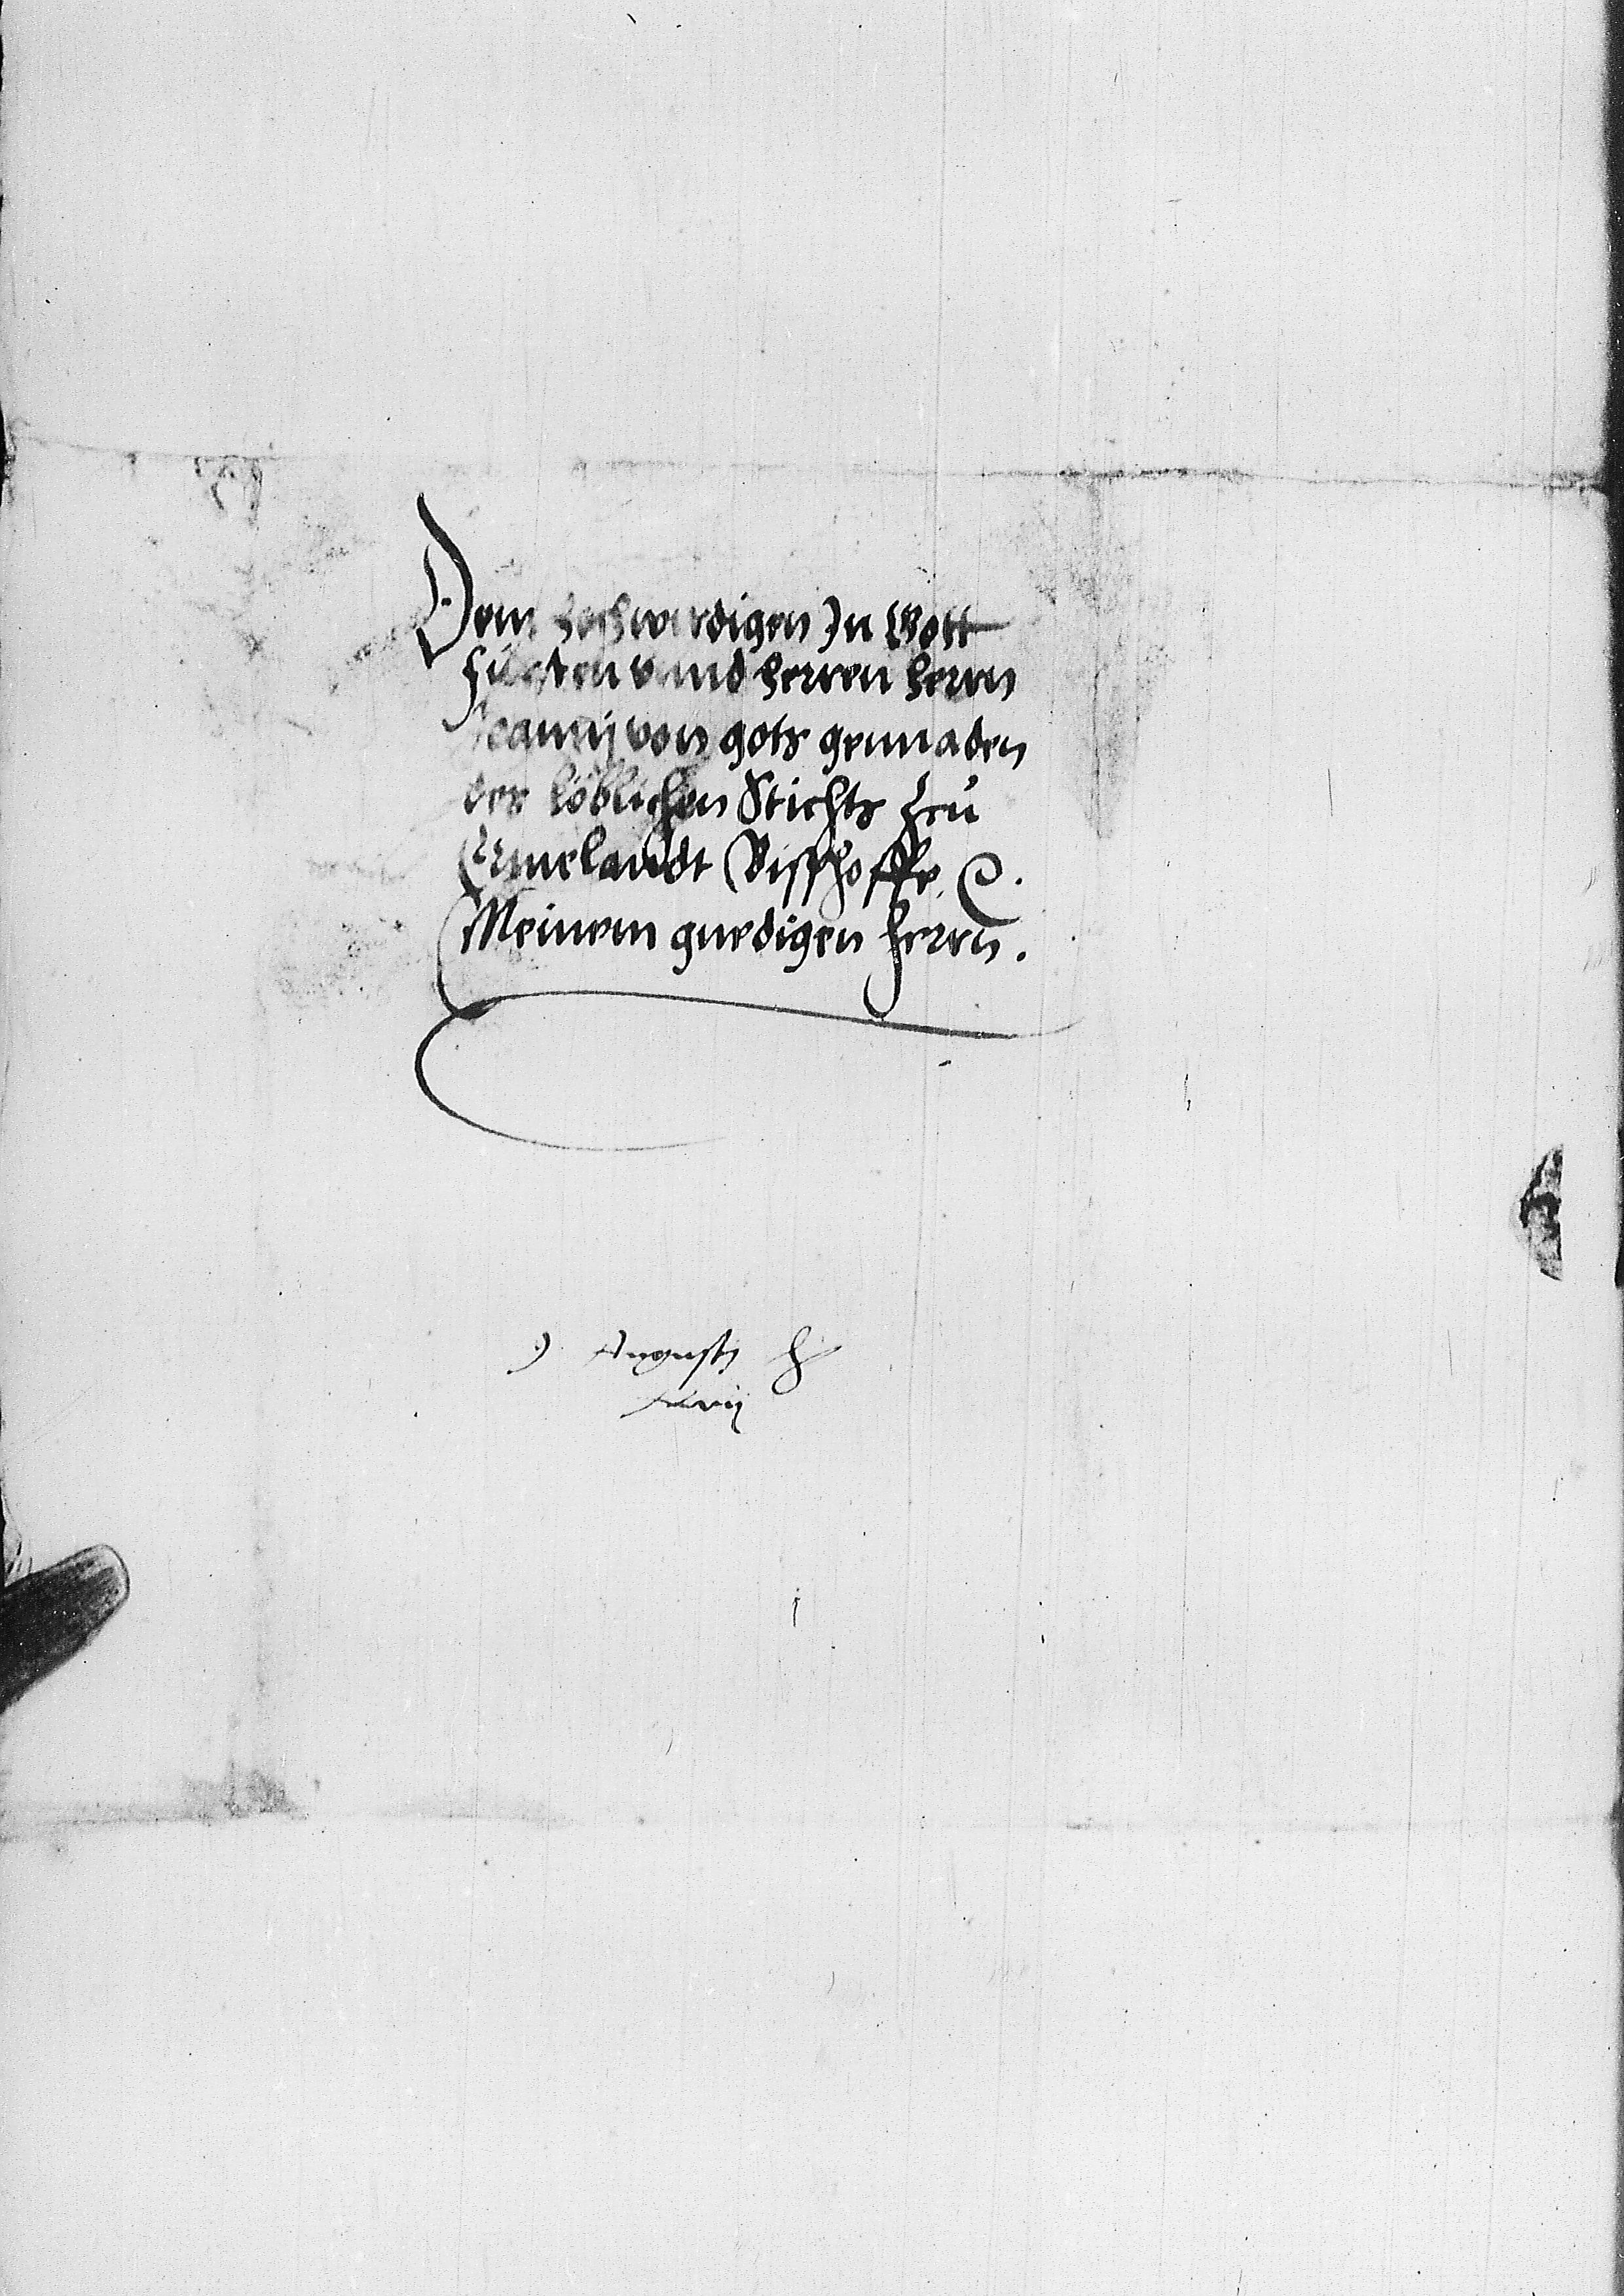 Dem hochwirdigen Jn Gott
fursten vnnd herren herrn
Joannj von gots gennaden
des löblichen Stichts zcu
Ermelandt Bisschoffe etc.
Meinem gnedigen herren.
Augusti